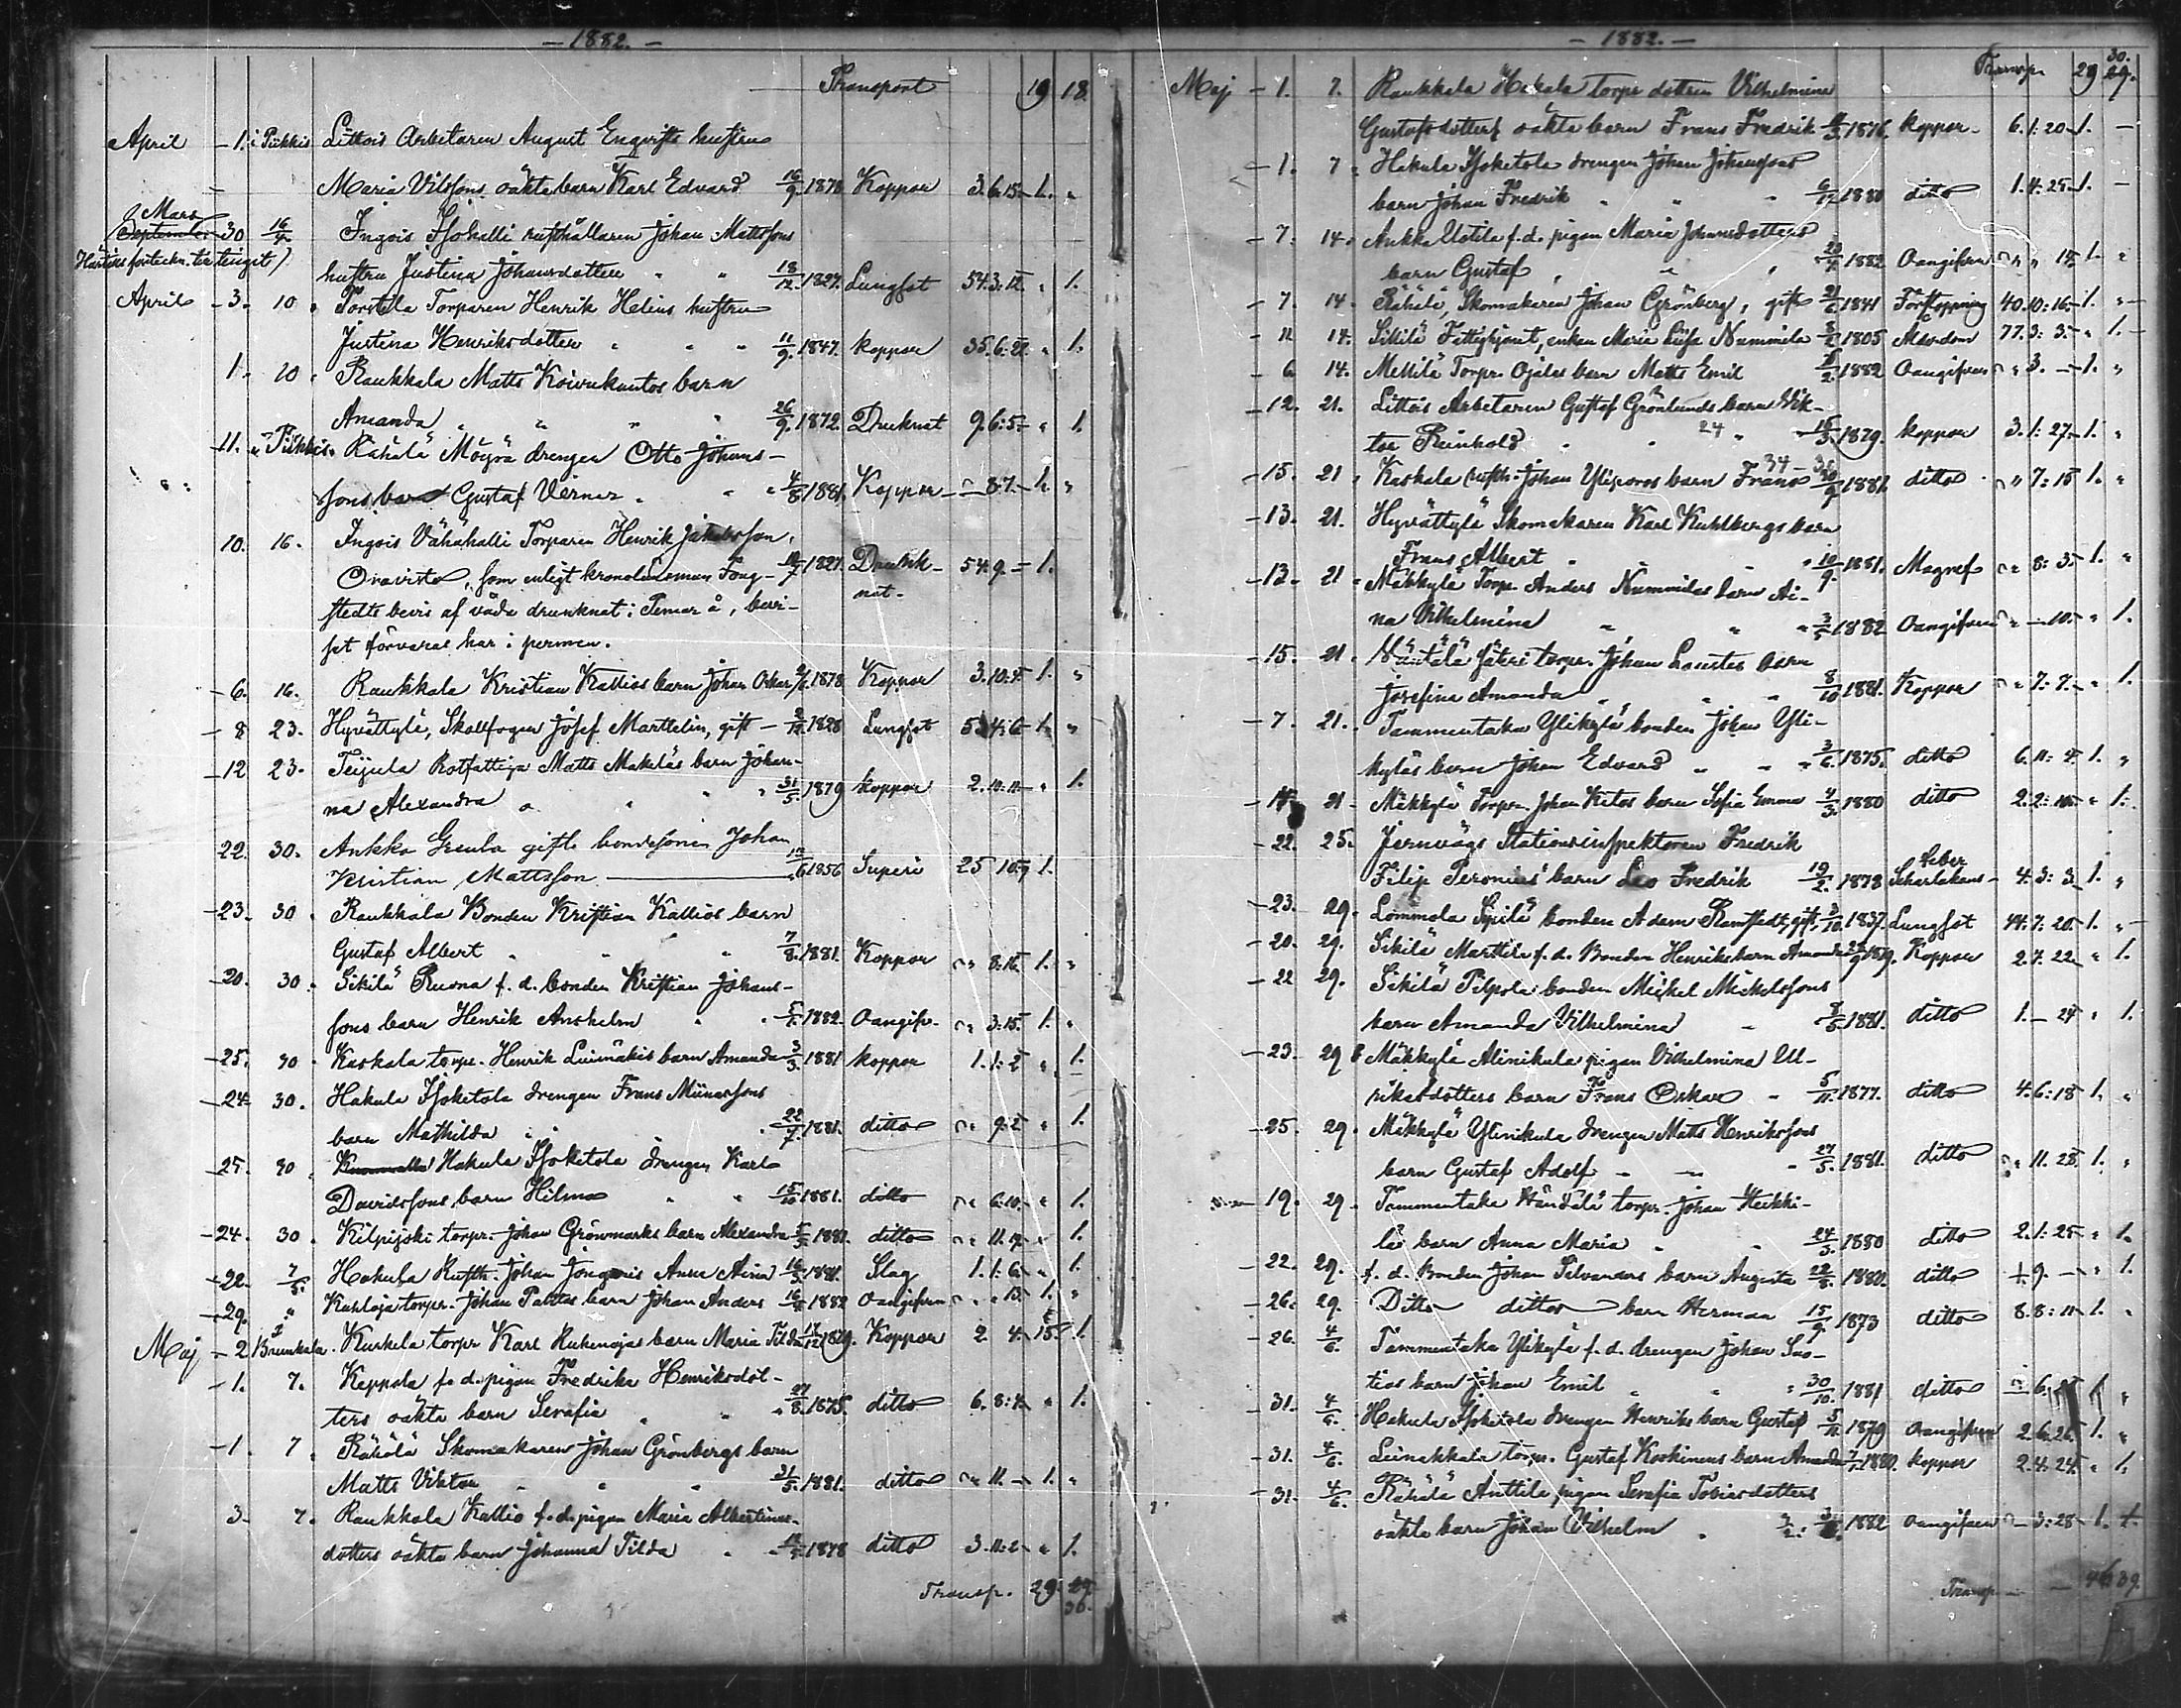 — 1882. —
Transport 19 18.
April — 1. i Pikkis Littois Arbetaren August Engvists hustru
Maria Vilsfons oäkta barn Karl Edvard 16/9. 1878 Koppor 3.6.15 — 1. „
Mars
September 30 16/4 Ingois Isohalli rusthållaren Johan Mattssons
hustru Justina Johansdotter „ „ 18/12. 1827. Lungsot 54.3.12. „ 1.
April — 3. 10 „ Torstila Torparen Henrik Helins hustru
Justina Henriksdotter „ „ „ 11/9. 1847. koppor 35.6.21. „ 1.
1. 10 „ Raukkala Matts Koivukantos barn
Amanda „ „ „ „ 26/9. 1872. Drucknat 9.6.5 — „ 1.
11. „ Pikkis „ Rähälä Möyrä drengen Otto Johans-
sons barn Gustaf Verner „ „ „ 4/8. 1881. Koppor — 8.7. — 1. „
10. 16. Ingois Vähähalli Torparen Henrik Jakobsson,
som enligt kronolänsman Fong- 1827. Drunk- 54.9. — 1.
stedts bevis af våda drunknat i Pemar å, bevi- nat.
set förvaras här i permen.
— 6. 16. Raukkala Kristian Kallios barn Johan Oskar 1878 Koppor 3.10.4. 1. „
— 8 23. Hyvättylä, Skollfogen Josef Marttelin, gift — 1828 Lungsot 53.4.6 — 1. „
— 12 23. Teijula Rotfattiga Matts Makiläs barn Johan-
na Alexandra „ „ „ „ 31/5. 1879 koppor 2.10.11 — „ 1.
— 22. 30. Ankka Greula gifte bondesonen Johan
Kristian Mattsson — 1856 Superi 25 10.9 1.
— 23. 30 „ Raukkala Bonden Kristian Kallios barn
Gustaf Albert „ „ „ 7/8. 1881. Koppor „ 8.16. 1. „
— 20. 30. Sikilä Ruona f. d. bonden Kristian Johans-
sons barn Henrik Anshelm „ „ 5/1. 1882. Oangifv. „ 3.15. 1. „
— 25. 30 „ Kaskala torpr. Henrik Luimäkis barn Amanda 3/3. 1881 koppor 1.1.2 „ 1.
— 24. 30. Hakula Isoketola drengen Frans Miinassons
barn Mathilda „ „ „ 22/7. 1881. ditto „ 9.2 „ 1.
— 25. 30 „ Hakula Isoketola drengen Karl
Davidssons barn Hilma „ „ 15/10. 1881. ditto „ 6.10. „ 1.
— 24. 30 „ Kilpijoki torpr. Johan Grönmarks barn Alexandra 5/5. 1881. ditto „ 11.19. „ 1.
— 22. 7/5. Hakula Rusth. Johan Anna Aina 16/3. 1881. Slag 1.1.6. „ 1.
— 29. „ Kuhloja torpr. Johan Palttas barn Johan Anders 16/4. 1882 Oangifven „ „ 13. 1. „
Maj — 2 Brunkala. Kurkela torpr Karl Ruhenojas barn Maria Tilda 17/12. 1879. Koppor 2 4. 15. „ 1.
— 1. 7. Keppola f. d. pigan Fredrika Henriksdot-
ters oäkta barn Serafia „ „ 27/8. 1875. ditto 6.8.4. „ 1.
— 1. 7 „ Rähälä Skomakaren Johan Grönbergs barn
Matts Viktor „ „ „ 31/5. 1881. ditto „ 11. — 1. „
3. 7. Raukkala Kallio f. d. pigan Maria Albertinas-
dotters oäkta barn Johanna Tilda „ „ 1878 ditto 3.11.2. „ 1.
Transp. 29. 29.
30.
— 1882. —
30.
Transp. 29 29.
Maj — 1. 7. Raukkala Hakala torpr dottren Vilhelmina
Gustafsdotters oäkta barn Frans Fredrik 1876. Koppor 6.1.20 — 1. —
— 1. 7 „ Hakula Isoketola drengen Johan Johanssons
barn Johan Fredrik „ „ „ 6/12. 1880 ditto 1.4.25 — 1. —
— 7. 14. Ankka Uotila f. d. pigan Maria Johansdotters
barn Gustaf „ „ „ 20/4 1882 Oangifven „ „ 14. 1. „
— 7. 14. Rähälä, Skomakaren Johan Grönberg, gift 21/6 1841 Förstoppning 40.10.16. — 1. „
— 11 14. Sikilä Fattighjont, enkan Maria Lisa Nummila 8/2 1805 Ålderdom 77.3.3. „ 1. —
— 6 14. Mellilä Torpr. Ojalas barn Matts Emil 5/2. 1882 Oangifven „ 3. — 1. „
— 12. 21. Littois Arbetaren Gustaf Grönlunds barn Vik-
tor Reinhold „ 24 „ 15/3. 1879. koppor 3.1.27. — 1. „
— 15. 21 „ Kaskala rusth. Johan Yliporos barn Frans 1881. ditto „ 7.15 1. „
— 13. 21. Hyvättylä Skomakaren Karl Kuhlbergs barn
Frans Albert „ „ „ 10/9. 1881. Magref „ 8.3. 1. „
— 13. 21 „ Mäkkylä Torp. Anders Nummilas barn Ai-
na Vilhelmina „ „ „ 1882 Oangifven „ — 10. „ 1.
— 15. 21. Jäteri torpr. Johan Laustes barn
Josefina Amanda „ „ „ 8/10 1881. Koppor „ 7.7. „ 1.
— 7. 21. Tammentaka Ylikylä bonden Johan Yli-
kyläs barn Johan Edvard „ „ 3/6. 1875. ditto 6.11.4. 1. „
21. Mäkkylä Torpr. Johan Ketos barn Sofia Emma 4/3. 1880 ditto 2.2. „ 1.
— 22. 25. Jernvägs Stationsinspektoren Fredrik
Filip Peronius barn Leo Fredrik 19/2. 1878 Scharlakans-feber 4.3.3. 1. „
— 23. 29. Lommola Sipilä bonden Adam Ramstedt, gift. 3/10. 1837. Lungsot 44.7.20. 1. „
— 20. 29. Sikilä Marttila f. d. Bonden Henriks barn Amanda 1879. Koppor 2.7.22. „ 1.
— 22 29. Sikilä Pilpola bonden Mickel Mickelssons
barn Amanda Vilhelmina „ 1881. ditto 1. — 24 „ 1.
— 23. 29. Mäkkylä Alinikula pigan Vilhelmina Ul-
riksdotters barn Frans Oskar „ 5/11. 1877. ditto 4.6.18 1. „
— 25. 29. Mäkkylä Ylinikula drengen Matts Henrikssons
barn Gustaf Adolf „ „ „ 27/5. 1881. ditto „ 11.28. 1. „
— 19. 29. Tammentaka Händälä torpr. Johan Heikki-
läs barn Anna Maria „ „ 24/3. 1880 ditto 2.1.25. „ 1.
— 22. 29. f. d. Bonden Johan Silvanders barn Augusta 22/8. 1880. ditto 1.9. — „ 1.
— 26. 29. Ditto dittos barn Herman 15/9 1873 ditto 8.8.11. 1. „
— 26. 4/6. Tammentaka Ylikylä f. d. drengen Johan Suo-
tias barn Johan Emil „ „ 30/10. 1881 ditto „ 6. 1. „
— 31. 4/6. Hakula Isoketola drengen Henriks barn Gustaf 5/11. 1879 Oangifven 2.6.26. 1. „
— 31. 4/6. Leinakkala torpr. Gustaf Koskinens barn Amanda 1880. koppor 2.4.24. „ 1.
— 31. 4/6. Rähälä Anttila pigan Serafia Tobiasdotters
oäkta barn Johan Vilhelm „ 1882 Oangifven „ 3.28. 1.
Transp. — 46 39.